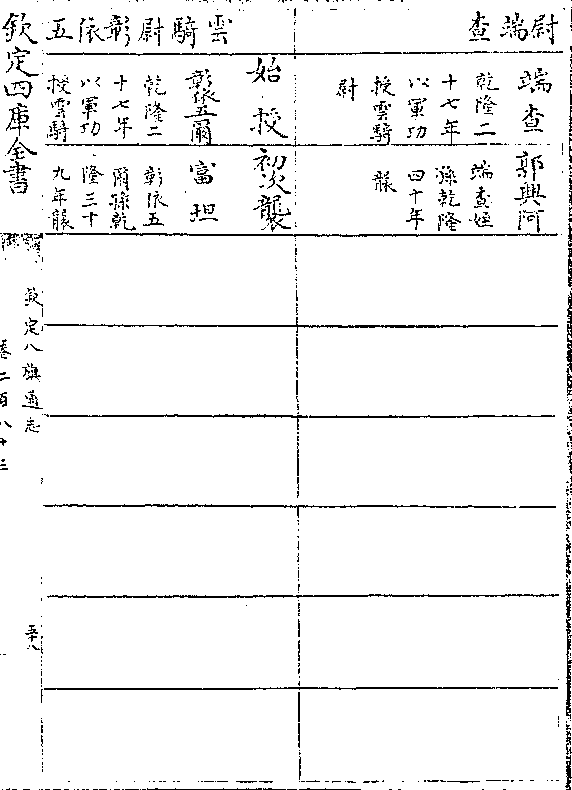 尉端查
端查
乾隆二
十七年
以軍功
授雲騎
尉
郭興阿
端查姪
孫乾隆
四十年
襲
雲騎尉彰依五
始授
彰依五爾
乾隆二
十七年
以軍功
授雲騎
初次襲
富坦
彰依五
爾孫乾
隆三十
九年襲
欽定四庫全書
欽定八旗通志
卷二百八十三
五十八